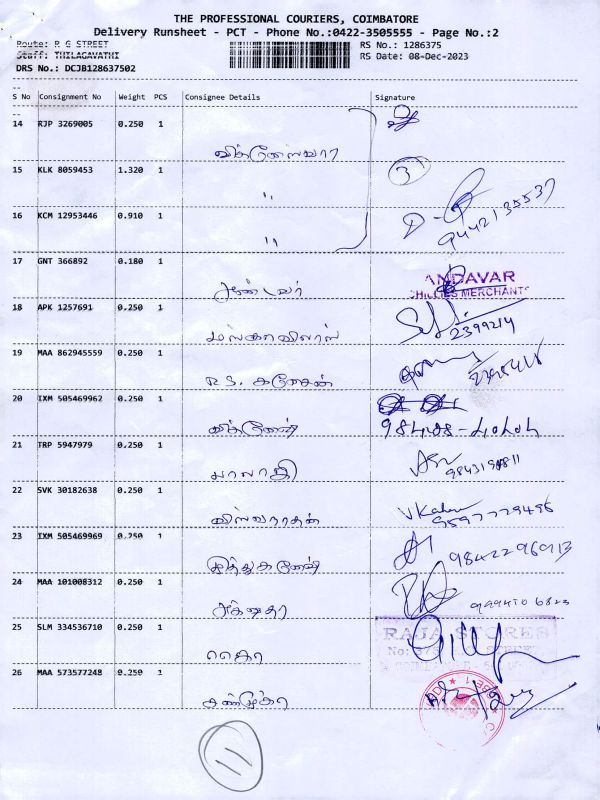 THE PROFESSIONAL COURIERS, COIMBATORE
Delivery Runsheet - PCT - Phone No.:0422-3505555 - Page No.:2
Route: R G STREET RS No.: 1286375
Staff: THILAGAVATHI RS Date: 08-Dec-2023
DRS No.: DCJB128637502
S No Consignment No Weight PCS Consignee Details Signature
14 RJP 3269005 0.250 1
விக்னேஸ்வரா
15 KLK 8059453 1.320 1 3
"
16 KCM 12953446 0.910 1
" 9442135537
17 GNT 366892 0.180 1
ஆண்டவர் ANDAVAR
CHILLIES MERCHANTS
18 APK 1257691 0.250 1
2399214
19 MAA 862945559 0.250 1
R.S. கணேசன்
20 IXM 505469962 0.250 1
விக்னேஷ் 98428-40404
21 TRP 5947979 0.250 1
பாலாஜி
22 SVK 30182638 0.250 1
விஸ்வநாதன் 9597779495
23 IXM 505469969 0.250 1
முத்துகணேஷ் 9842296913
24 MAA 101008312 0.250 1
25 SLM 334536710 0.250 1
RAJA STORES
26 MAA 573577248 0.250 1
11